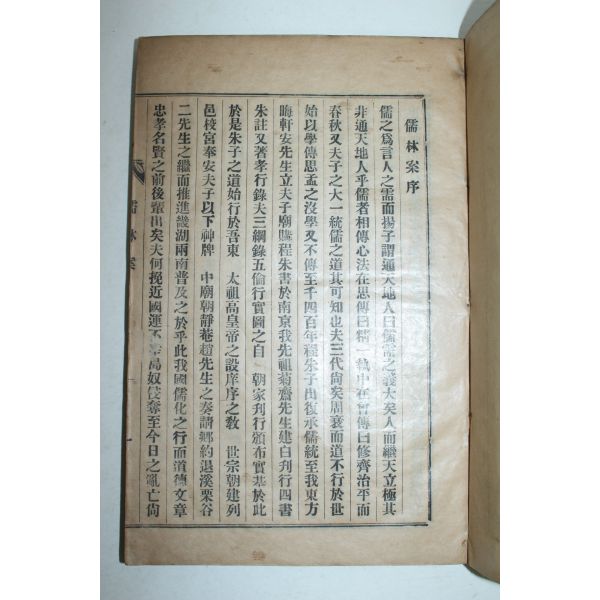 儒林案序
儒之爲言人之需而揚子謂通天地人曰儒儒之義大矣人而繼天立極其
非通天地人乎儒者相傳心法在思傳曰精一執中在曾傳曰修齊治平而
春秋又夫子之大一統儒之道其可知也夫三代尙矣周衰而道不行於世
始以學傳思孟之沒學又不傳至千四百年程朱子出復承儒統至我東方
晦軒安先生立夫子廟購程朱書於南京我先祖菊齋先生建白刋行四書
朱註又著孝行錄夫三綱錄五倫行實圖之自 朝家刋行頒布實基於此
於是朱子之道始行於吾東 太祖高皇帝之設庠序之敎 世宗朝建列
邑校宮奉安夫子以下神牌 中廟朝靜菴趙先生之奏請鄕約退溪栗谷
二先生之繼而推進畿湖兩南普及之於乎此我國儒化之行而道德文章
忠孝名賢之前後輩出矣夫何挽近國運不 島奴侵奪至今日之亂亡尙
儒林案
一